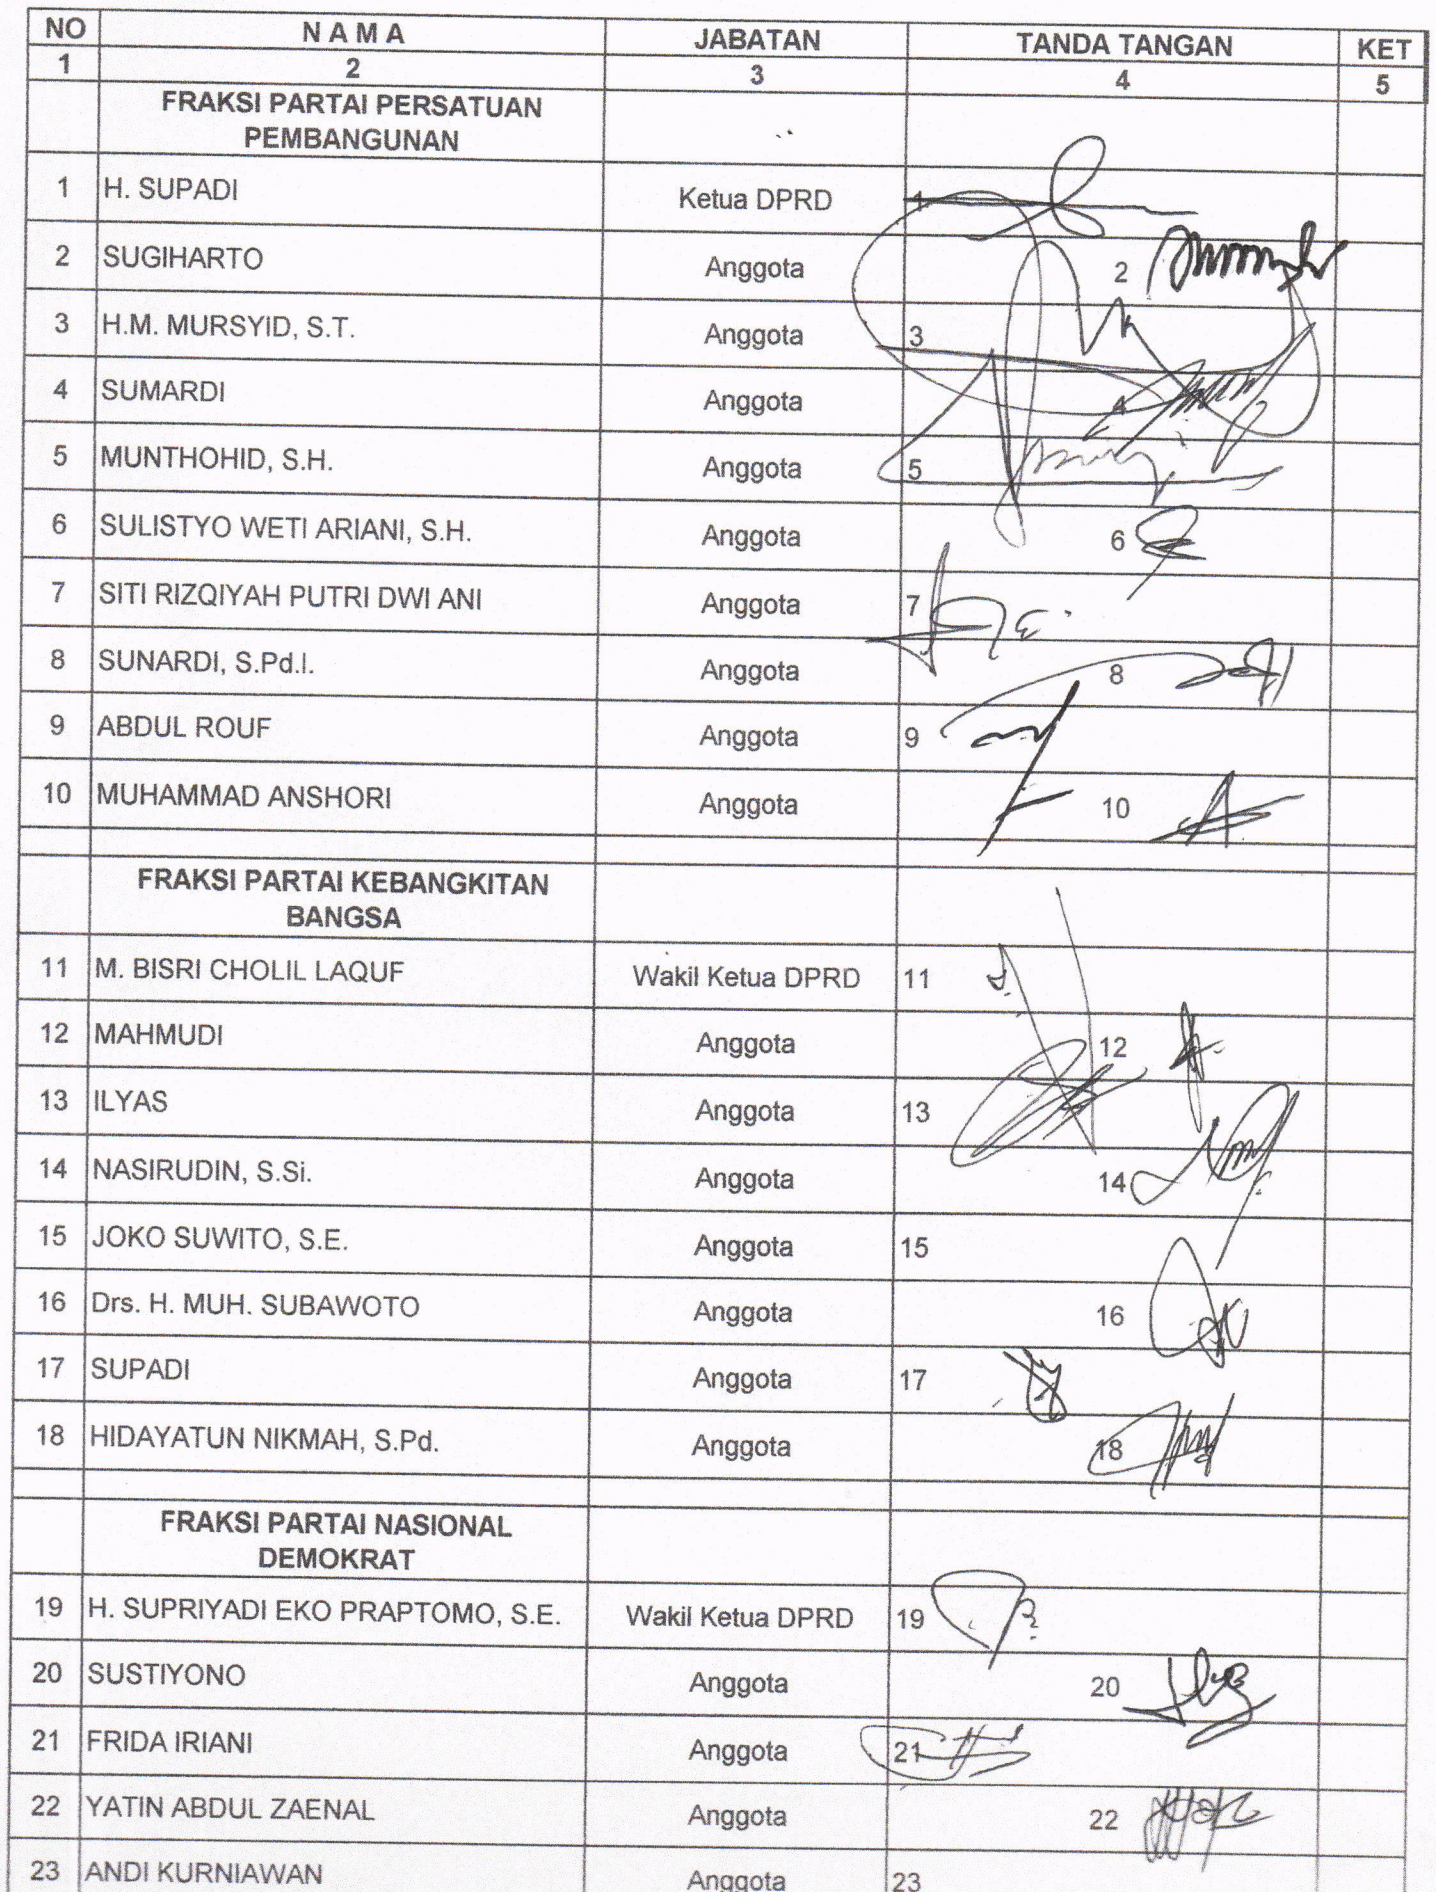 NO NAMA JABATAN TANDA TANGAN KET
1 2 3 4 5
FRAKSI PARTAI PERSATUAN
PEMBANGUNAN
1 H. SUPADI Ketua DPRD 1
2 SUGIHARTO Anggota 2
3 H.M. MURSYID, S.T. Anggota 3
4 SUMARDI Anggota 4
5 MUNTHOHID, S.H. Anggota 5
6 SULISTYO WETI ARIANI, S.H. Anggota 6
7 SITI RIZQIYAH PUTRI DWI ANI Anggota 7
8 SUNARDI, S.Pd.I. Anggota 8
9 ABDUL ROUF Anggota 9
10 MUHAMMAD ANSHORI Anggota 10
FRAKSI PARTAI KEBANGKITAN
BANGSA
11 M. BISRI CHOLIL LAQUF Wakil Ketua DPRD 11
12 MAHMUDI Anggota 12
13 ILYAS Anggota 13
14 NASIRUDIN, S.Si. Anggota 14
15 JOKO SUWITO, S.E. Anggota 15
16 Drs. H. MUH. SUBAWOTO Anggota 16
17 SUPADI Anggota 17
18 HIDAYATUN NIKMAH, S.Pd. Anggota 18
FRAKSI PARTAI NASIONAL
DEMOKRAT
19 H. SUPRIYADI EKO PRAPTOMO, S.E. Wakil Ketua DPRD 19
20 SUSTIYONO Anggota 20
21 FRIDA IRIANI Anggota 21
22 YATIN ABDUL ZAENAL Anggota 22
23 ANDI KURNIAWAN Anggota 23